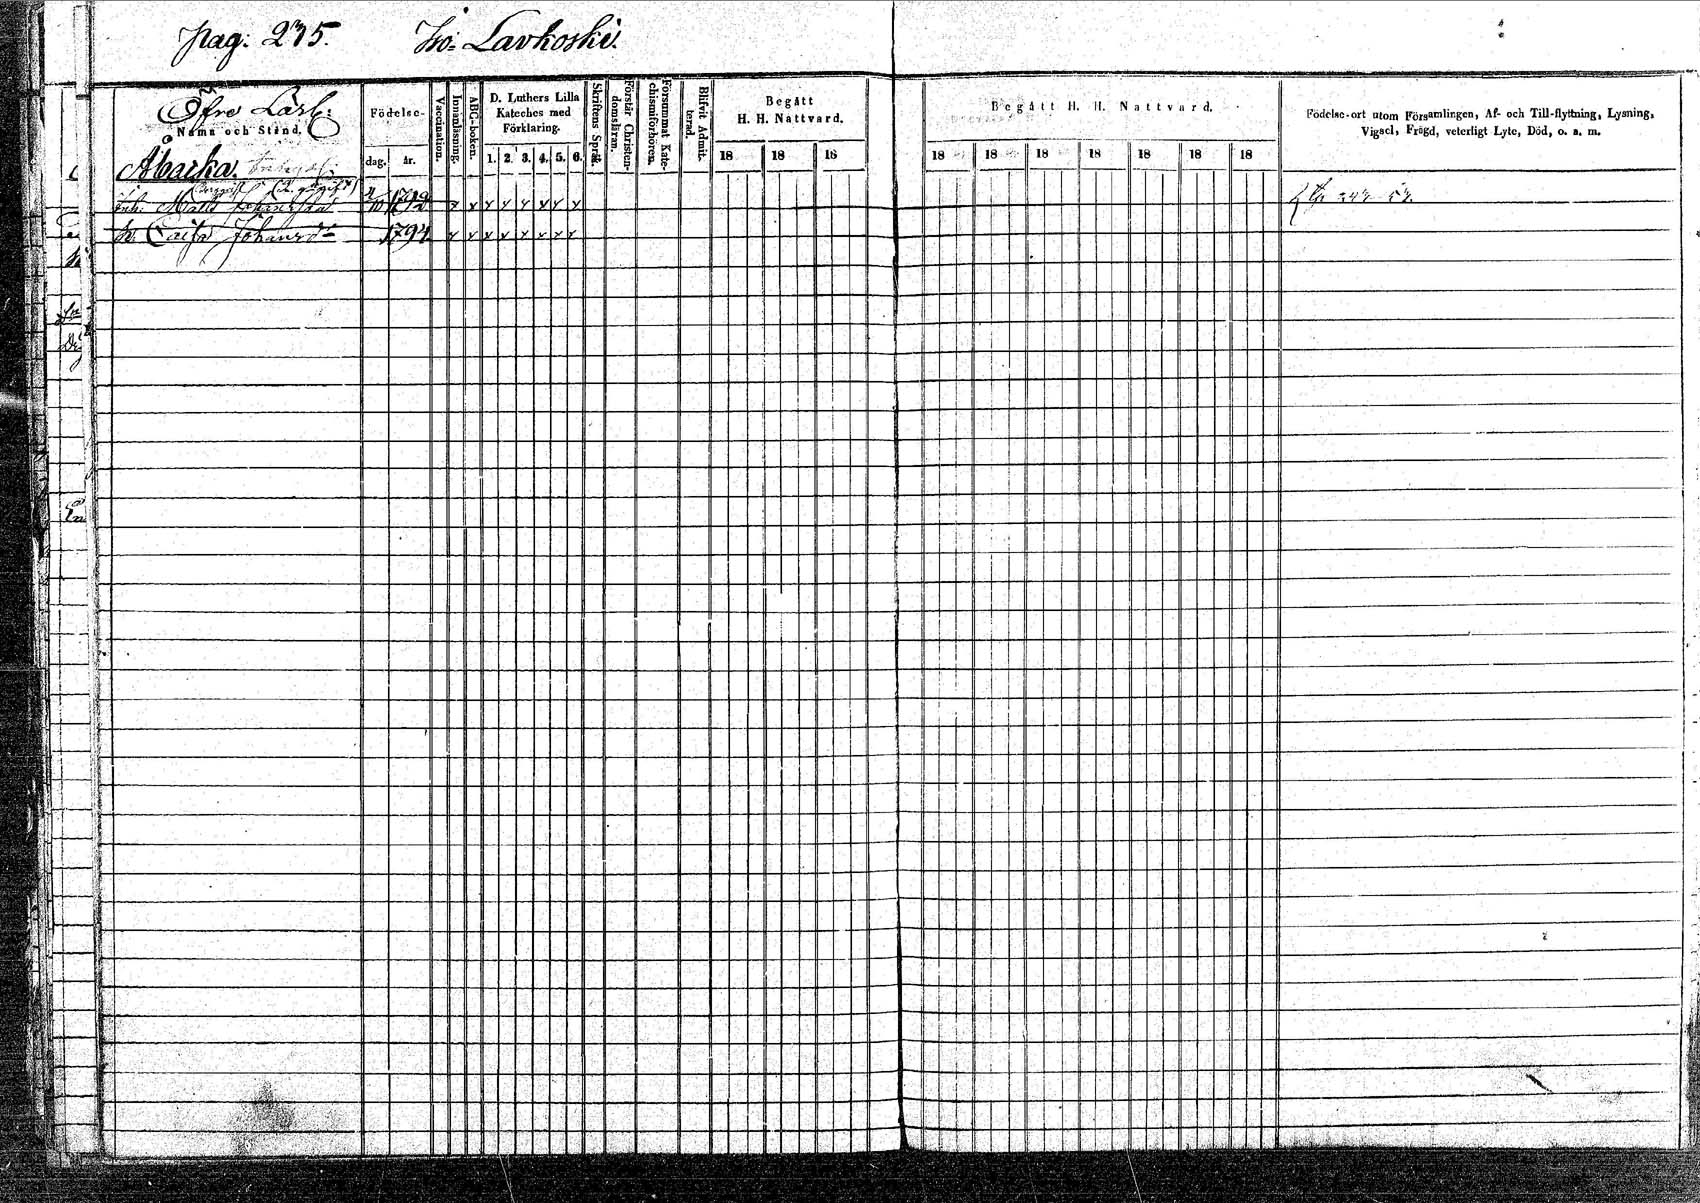 pag: 235. Iso: Lavkoski.
Öfre Lasb:
Namn och Stånd.
Födelse-
dag. år.
Vaccination.
Innanläsning.
ABC-boken.
D. Luthers Lilla
Kateches med
Förklaring.
1. 2. 3. 4. 5. 6.
Skriftens Språk.
Förstår Christen-
domsläran.
Försummat Kate-
chismiförhören.
Blifvit Admit-
terad.
Begått
H. H. Nattvard.
18 18 18
Begått H. H. Nattvard.
18 18 18 18 18 18 18
Födelse-ort utom Församlingen, Af- och Till-flyttning, Lysning,
Vigsel, Frägd, veterligt Lyte, Död, o. s. m.
Åbacka.
Inh: Matts Johansson 1792 x x x x x x x x
h. Caisa Johansd:r 1794 x x x x x x x x